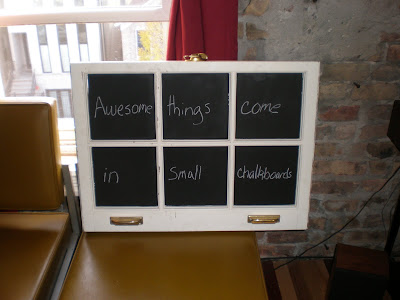 Awesome things come
in small chalkboards